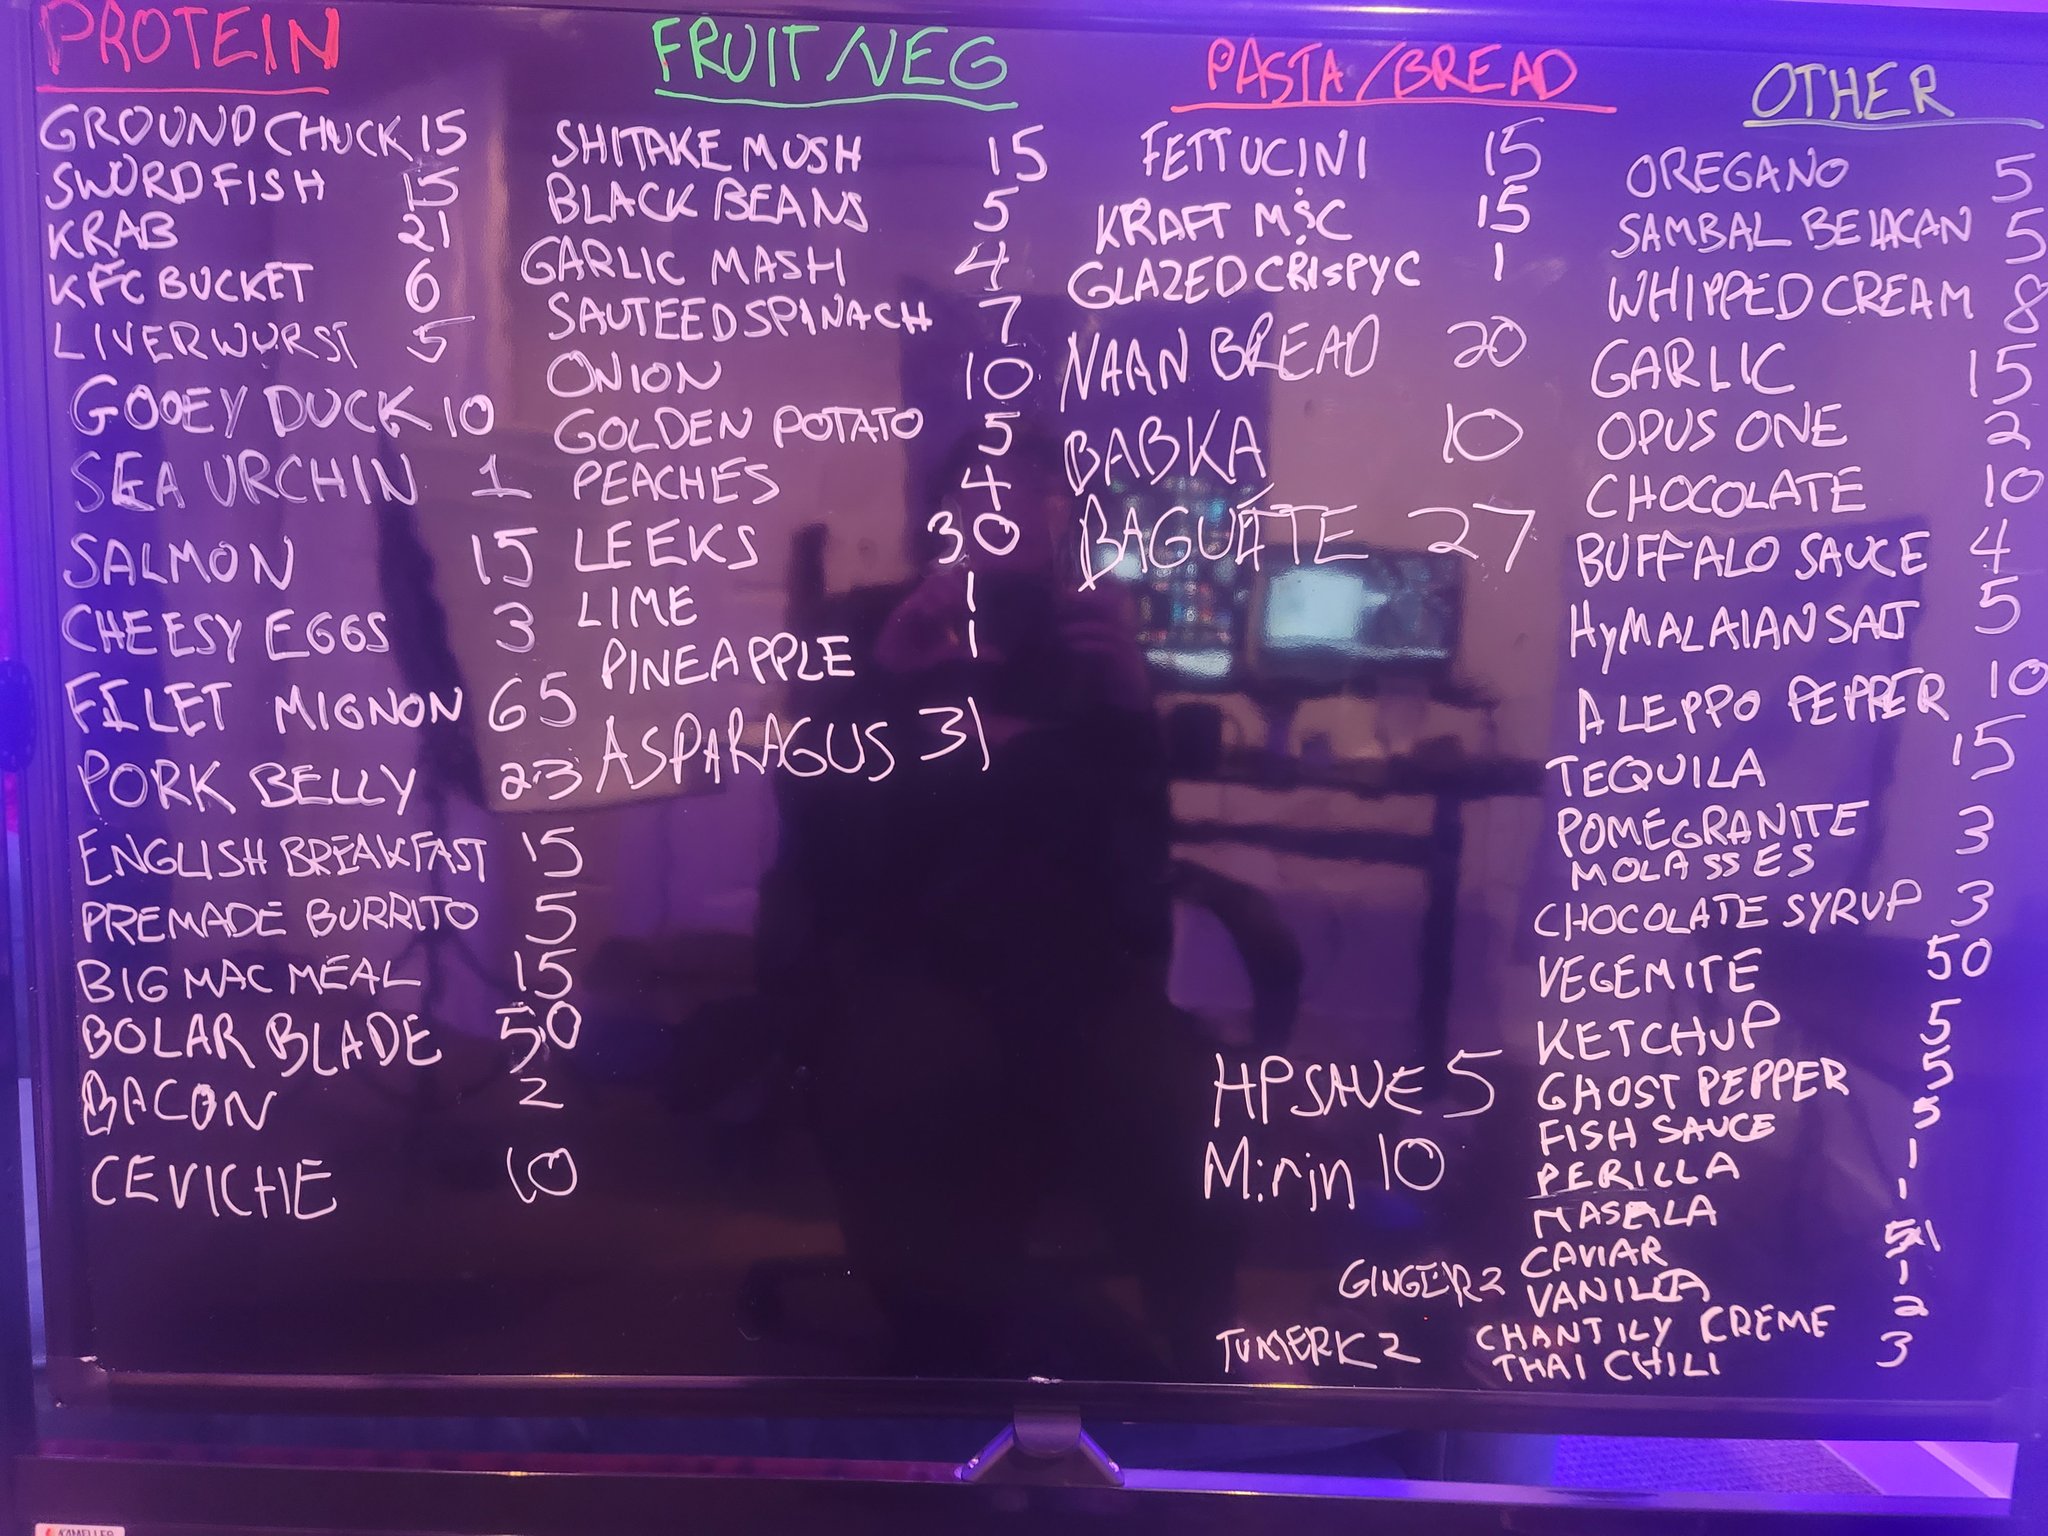 PROTEIN
GROUND CHUCK 15
SWORDFISH 15
KRAB 21
KFC BUCKET 6
LIVERWURST 5
GOOEY DUCK 10
SEA URCHIN 1
SALMON 15
CHEESY EGGS 3
FILET MIGNON 65
PORK BELLY 23
ENGLISH BREAKFAST 15
PREMADE BURRITO 5
BIG MAC MEAL 15
BOLAR BLADE 50
BACON 2
CEVICHE 10
FRUIT/VEG
SHITAKE MUSH 15
BLACK BEANS 5
GARLIC MASH 4
SAUTEED SPINACH 7
ONION 10
GOLDEN POTATO 5
PEACHES 4
LEEKS 30
LIME 1
PINEAPPLE 1
ASPARAGUS 31
PASTA/BREAD
FETTUCINI 15
KRAFT M&C 15
GLAZED CRISPYC 1
NAAN BREAD 20
BABKA 10
BAGUETTE 27
OTHER
OREGANO 5
SAMBAL BELACAN 5
WHIPPED CREAM 8
GARLIC 15
OPUS ONE 2
CHOCOLATE 10
BUFFALO SAUCE 4
HyMALAIAN SALT 5
ALEPPO PEPPER 10
TEQUILA 15
POMEGRANITE
MOLASSES 3
CHOCOLATE SYRUP 3
VEGEMITE 50
KETCHUP 5
GHOST PEPPER 5
FISH SAUCE 5
PERILLA 1
MASALA 1
CAVIAR 1
VANILLA 1
CHANTILY CREME 2
THAI CHILI 3
HP SAUCE 5
Mirin 10
GINGER 2
TUMERK 2